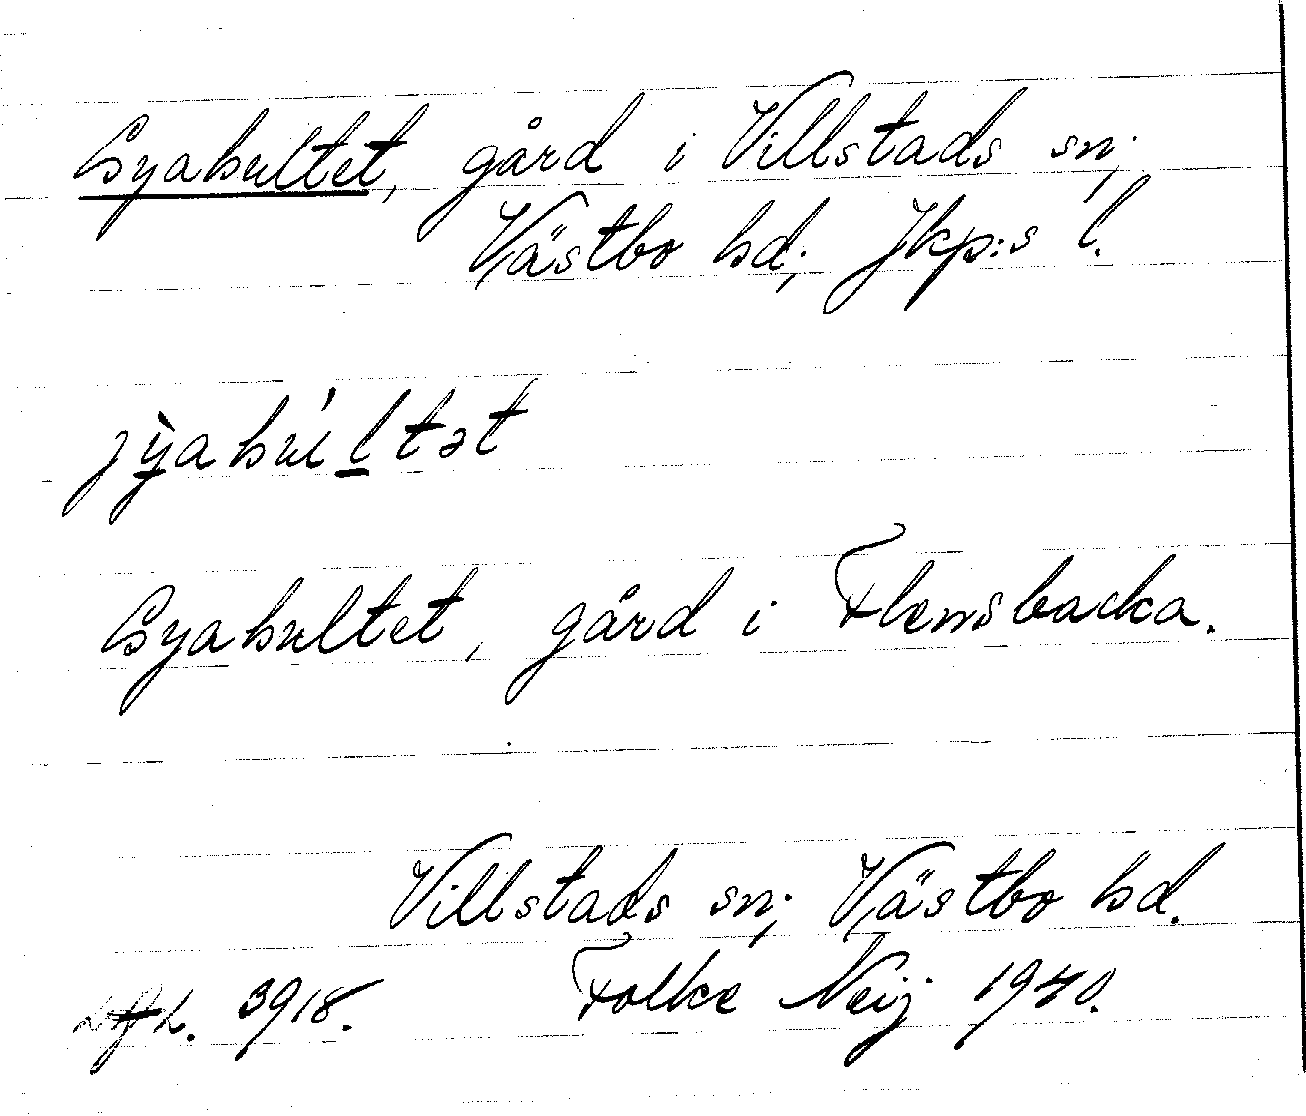 Gyahultet, gård i Villstads sn;
Västbo hd; Jkp:s l.
jỳ̱ahúḻtət
Gyahultet, gård i Flemsbacka.
Villstads sn; Västbo hd.
3918. Folke Neij 1940.